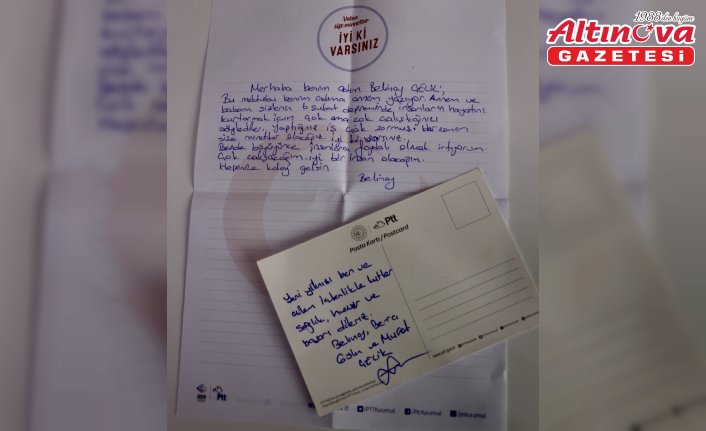 1988'den bugüne
ALTINOVA
GAZETESİ
Vatan size minnettar
İYİ Kİ
VARSINIZ
Merhaba benim adım Belinay ÇELİK;
Bu mektubu benim adıma annem yazıyor. Annem ve
babam sizlerin 6 şubat depreminde insanların hayatını
kurtarmak için çok ama çok çalıştığınızı
söylediler. Yaptığınız iş çok zormuş her zaman
size minnettar olacağız. iyi ki varsınız.
Bende büyüyünce insanlara faydalı olmak istiyorum.
Çok çalışacağım, iyi bir insan olacağım.
Hepinize kolay gelsin
Belinay
Ptt
Posta Kartı / Postcard
Yeni yılınızı ben ve
ailem içtenlikle kutlar
sağlık, huzur ve
başarı dileriz.
Belinay,
ve Murat
ÇELİK
www.ptt.gov.tr
Ptt
/PTTKurumsal
/Ptt.Kurumsal
/pttkurumsal